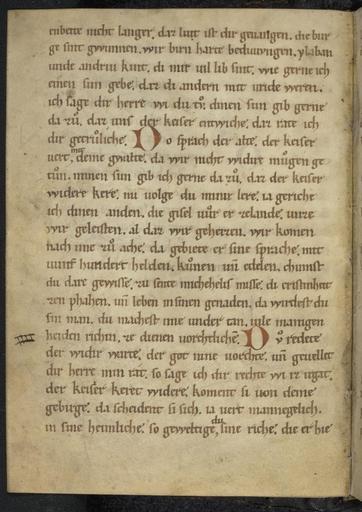 enbette nicht langer. daz lut ist dir geuallen. die bur
ge sint gewunnen. wir birn harte bedwngen. ylaban
unde andriu kint. di mir uil lib sint. wie gerne ich
einen sun gebe. daz di andern mit uride weren.
ich sage dir herre wi du tů. dinen sun gib gerne
da zů. daz uns der keiser entwiche. daz rate ich
dir getrůliche. Do sprach der alte. der keiser
uert mit deme gwalte. da wir nicht widire můgen ge
tůn. minen sun gib ich gerne da zů. daz der keiser
widere kere. nu uolge du minir lere. ia geriche
ich dinen anden. die gisel uůr er ze lande. unze
wir geleisten. al daz wir geheizen. wir komen
nach ime zů ache. da gebiete er sine sprache. mit
uunf hundert helden. kůnen un edelen. chumist
du dare gewisse. zu sente michehelis misse. di cristinheit
zen phahen. un leben in sinen genaden. da wirdest du
sin man. du machest ime under tan. uile manigen
heiden
der widir warte. der got nine uorchte. un geuellet
dir herre min rat. so sage ich dir rechte wi iz irgat.
der keiser keret widere. koment si uon deme
gebirge. da scheident si sich. ia uert mannegelich.
in sine heimliche. so geweltige du sine riche. die er hie